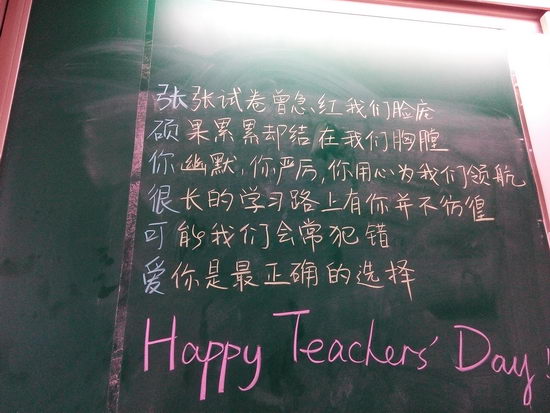 张张试卷曾急红我们脸庞
硕果累累却结在我们胸膛
你幽默,你严厉,你用心为我们领航
很长的学习路上有你并不彷徨
可能我们会常犯错
爱你是最正确的选择
Happy Teachers' Day!